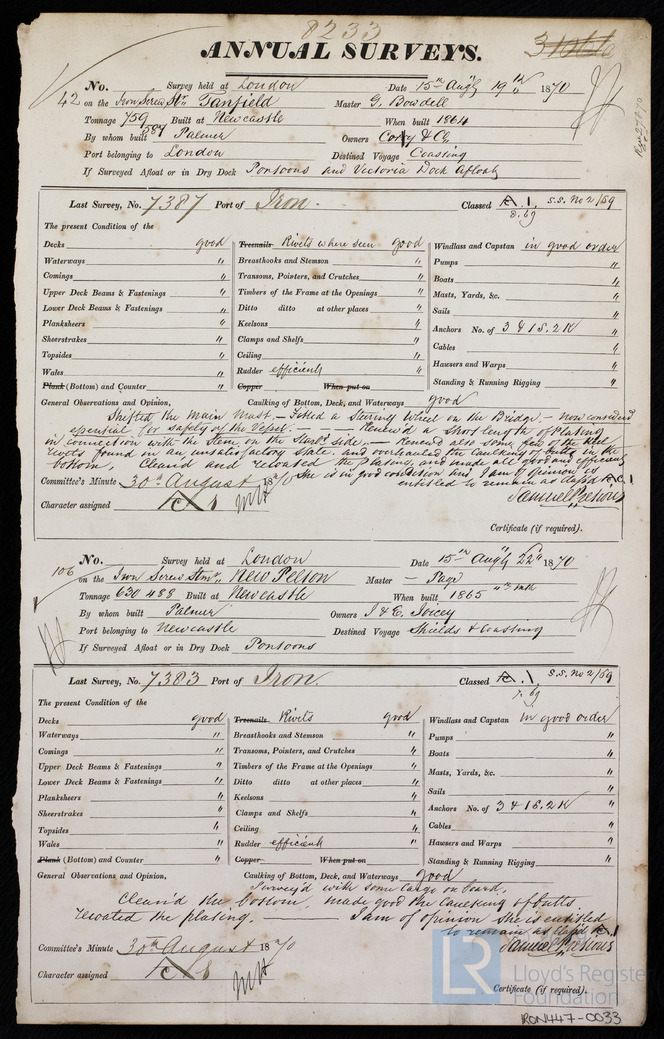 8233
ANNUAL SURVEYS.
No. 42 Survey held at London Date 15th Augt 19th 1870
on the Iron Screw Str Tanfield Master G. Bowdell
Tonnage 759 584 Built at Newcastle When built 1864
By whom built Palmer Owners Cory & Co.
Port belonging to London Destined Voyage Coasting
If Surveyed Afloat or in Dry Dock Pontoons and Victoria Dock afloat
Last Survey, No. 7387 Port of Iron. Classed A.1. S.S. No 2/69
8.69
The present Condition of the
Decks good Treenails Rivets where seen good Windlass and Capstan in good order
Waterways " Breasthooks and Stemson " Pumps "
Comings " Transoms, Pointers, and Crutches " Boats "
Upper Deck Beams & Fastenings " Timbers of the Frame at the Openings " Masts, Yards, &c. "
Lower Deck Beams & Fastenings " Ditto ditto at other places " Sails "
Planksheers " Keelsons " Anchors No. of 3 & 1 S. 2 K "
Sheerstrakes " Clamps and Shelfs " Cables "
Topsides " Ceiling " Hawsers and Warps "
Wales " Rudder efficient " Standing & Running Rigging "
Plank (Bottom) and Counter " Copper When put on
General Observations and Opinion, Caulking of Bottom, Deck, and Waterways good
Shifted the Main Mast. - Fitted a Steering Wheel on the Bridge. - now considered
essential for safety of the Vessel. - Renew'd a short length of Plating
in connection with the Stem, on the Starbd side. - Renewed also some few of the
rivets found in an unsatisfactory state, and overhauled the caulking of butts in the
bottom, Clean'd and recoated the plating, and made all good and efficient
She is in good condition and I am of opinion is
entitled to remain as Class'd A.1
Committee's Minute 30th August 1870 Samuel Pretious
Character assigned A 1
Certificate (if required).
No. 106 Survey held at London Date 15th Augt 22d 1870
on the Iron Screw Stmr. New Pelton Master - Page
Tonnage 630 488 Built at Newcastle When built 1865 4th mth
By whom built Palmer Owners J & E. Joicey
Port belonging to Newcastle Destined Voyage Shields & Coasting
If Surveyed Afloat or in Dry Dock Pontoons
Last Survey, No. 7383 Port of Iron. Classed A.1 S.S. No 2/69
7.69
The present Condition of the
Decks good Treenails Rivets good Windlass and Capstan in good order
Waterways " Breasthooks and Stemson " Pumps "
Comings " Transoms, Pointers, and Crutches " Boats "
Upper Deck Beams & Fastenings " Timbers of the Frame at the Openings " Masts, Yards, &c. "
Lower Deck Beams & Fastenings " Ditto ditto at other places " Sails "
Planksheers " Keelsons " Anchors No. of 3 & 1 S. 2 K "
Sheerstrakes " Clamps and Shelfs " Cables "
Topsides " Ceiling " Hawsers and Warps "
Wales " Rudder efficient " Standing & Running Rigging "
Plank (Bottom) and Counter " Copper When put on
General Observations and Opinion, Caulking of Bottom, Deck, and Waterways good
Survey'd with some Cargo on board,
Clean'd the bottom, made good the caulking of butts
recoated the plating. - I am of opinion she is entitled
to remain as Class'd A.1
Committee's Minute 30th August 1870 Samuel Pretious
Character assigned A 1
Certificate (if required).
LR Lloyd's Register Foundation
RON447-0033